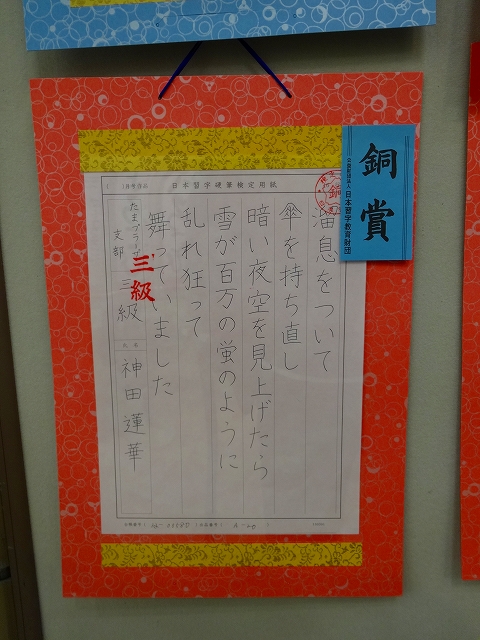 銅賞
公益財団法人 日本習字教育財団
日本習字硬筆検定用紙
溜息をついて
傘を持ち直し
暗い夜空を見上げたら
雪が百万の蛍のように
乱れ狂って
舞っていました
たまプラーザ
支部
三級
三級
氏名
神田蓮華